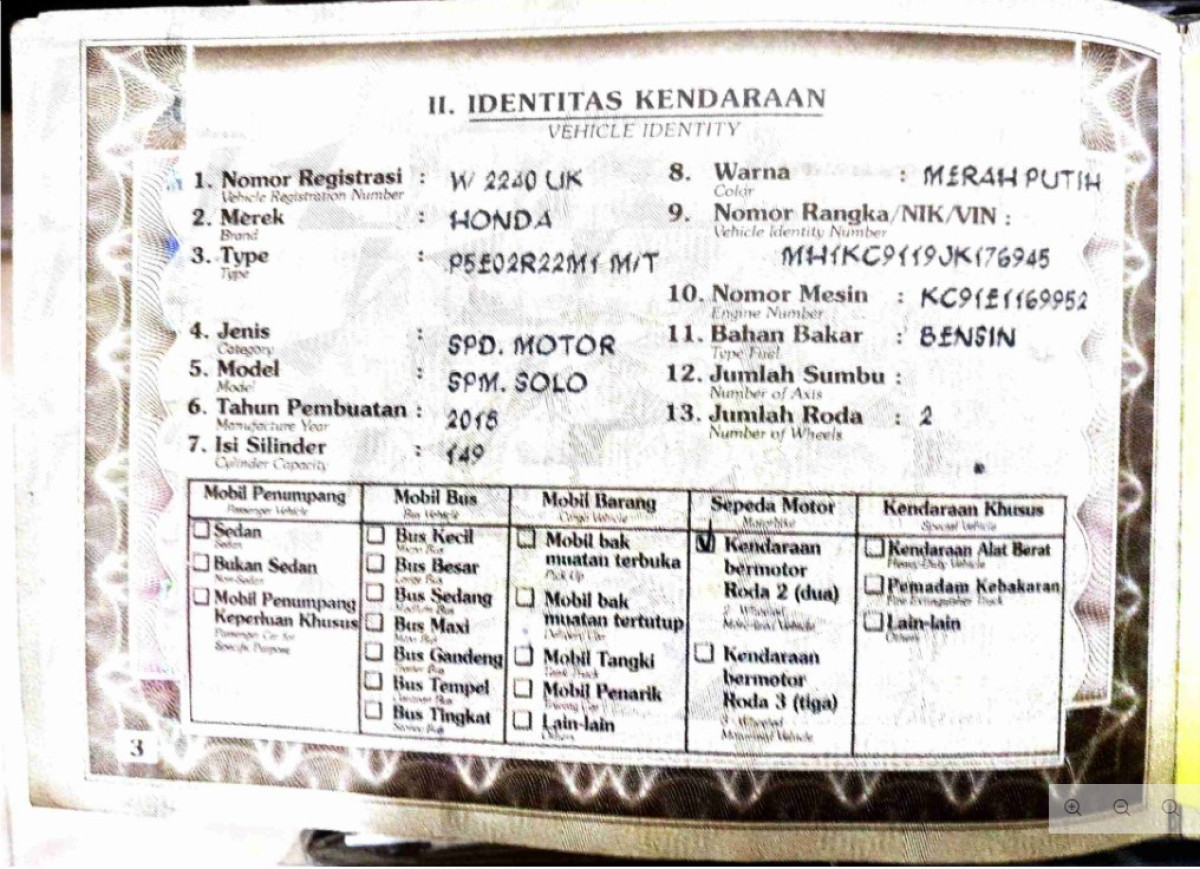 II. IDENTITAS KENDARAAN
VEHICLE IDENTITY
1. Nomor Registrasi : W 2240 UK
Vehicle Registration Number
2. Merek : HONDA
Brand
3. Type : P5E02R22M1 M/T
Type
4. Jenis : SPD. MOTOR
Category
5. Model : SPM. SOLO
Model
6. Tahun Pembuatan : 2018
Manufacture Year
7. Isi Silinder : 149
Cylinder Capacity
8. Warna : MERAH PUTIH
Color
9. Nomor Rangka/NIK/VIN :
Vehicle Identity Number
MH1KC9119JK176945
10. Nomor Mesin : KC91E1169952
Engine Number
11. Bahan Bakar : BENSIN
Type Fuel
12. Jumlah Sumbu :
Number of Axis
13. Jumlah Roda : 2
Number of Wheels
Mobil Penumpang
Passenger Vehicle
Sedan
Sedan
Bukan Sedan
Non-Sedan
Mobil Penumpang
Keperluan Khusus
Passenger Car for
Specific Purpose
Mobil Bus
Bus Vehicle
Bus Kecil
Micro Bus
Bus Besar
Large Bus
Bus Sedang
Medium Bus
Bus Maxi
Maxi Bus
Bus Gandeng
Bus Tempel
Bus Tingkat
Mobil Barang
Cargo Vehicle
Mobil bak
muatan terbuka
Pick Up
Mobil bak
muatan tertutup
Delivery Car
Mobil Tangki
Tank Truck
Mobil Penarik
Lain-lain
Others
Sepeda Motor
Motorbike
Kendaraan
bermotor
Roda 2 (dua)
2 Wheeled
Motorized Vehicle
Kendaraan
bermotor
Roda 3 (tiga)
3 Wheeled
Motorized Vehicle
Kendaraan Khusus
Special Vehicle
Kendaraan Alat Berat
Heavy Duty Vehicle
Pemadam Kebakaran
Fire Extinguisher Truck
Lain-lain
Others
3